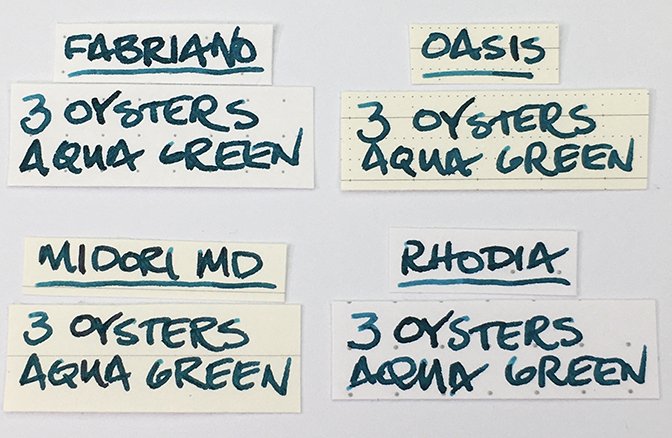 FABRIANO
3 OYSTERS
AQUA GREEN
OASIS
3 OYSTERS
AQUA GREEN
MIDORI MD
3 OYSTERS
AQUA GREEN
RHODIA
3 OYSTERS
AQUA GREEN